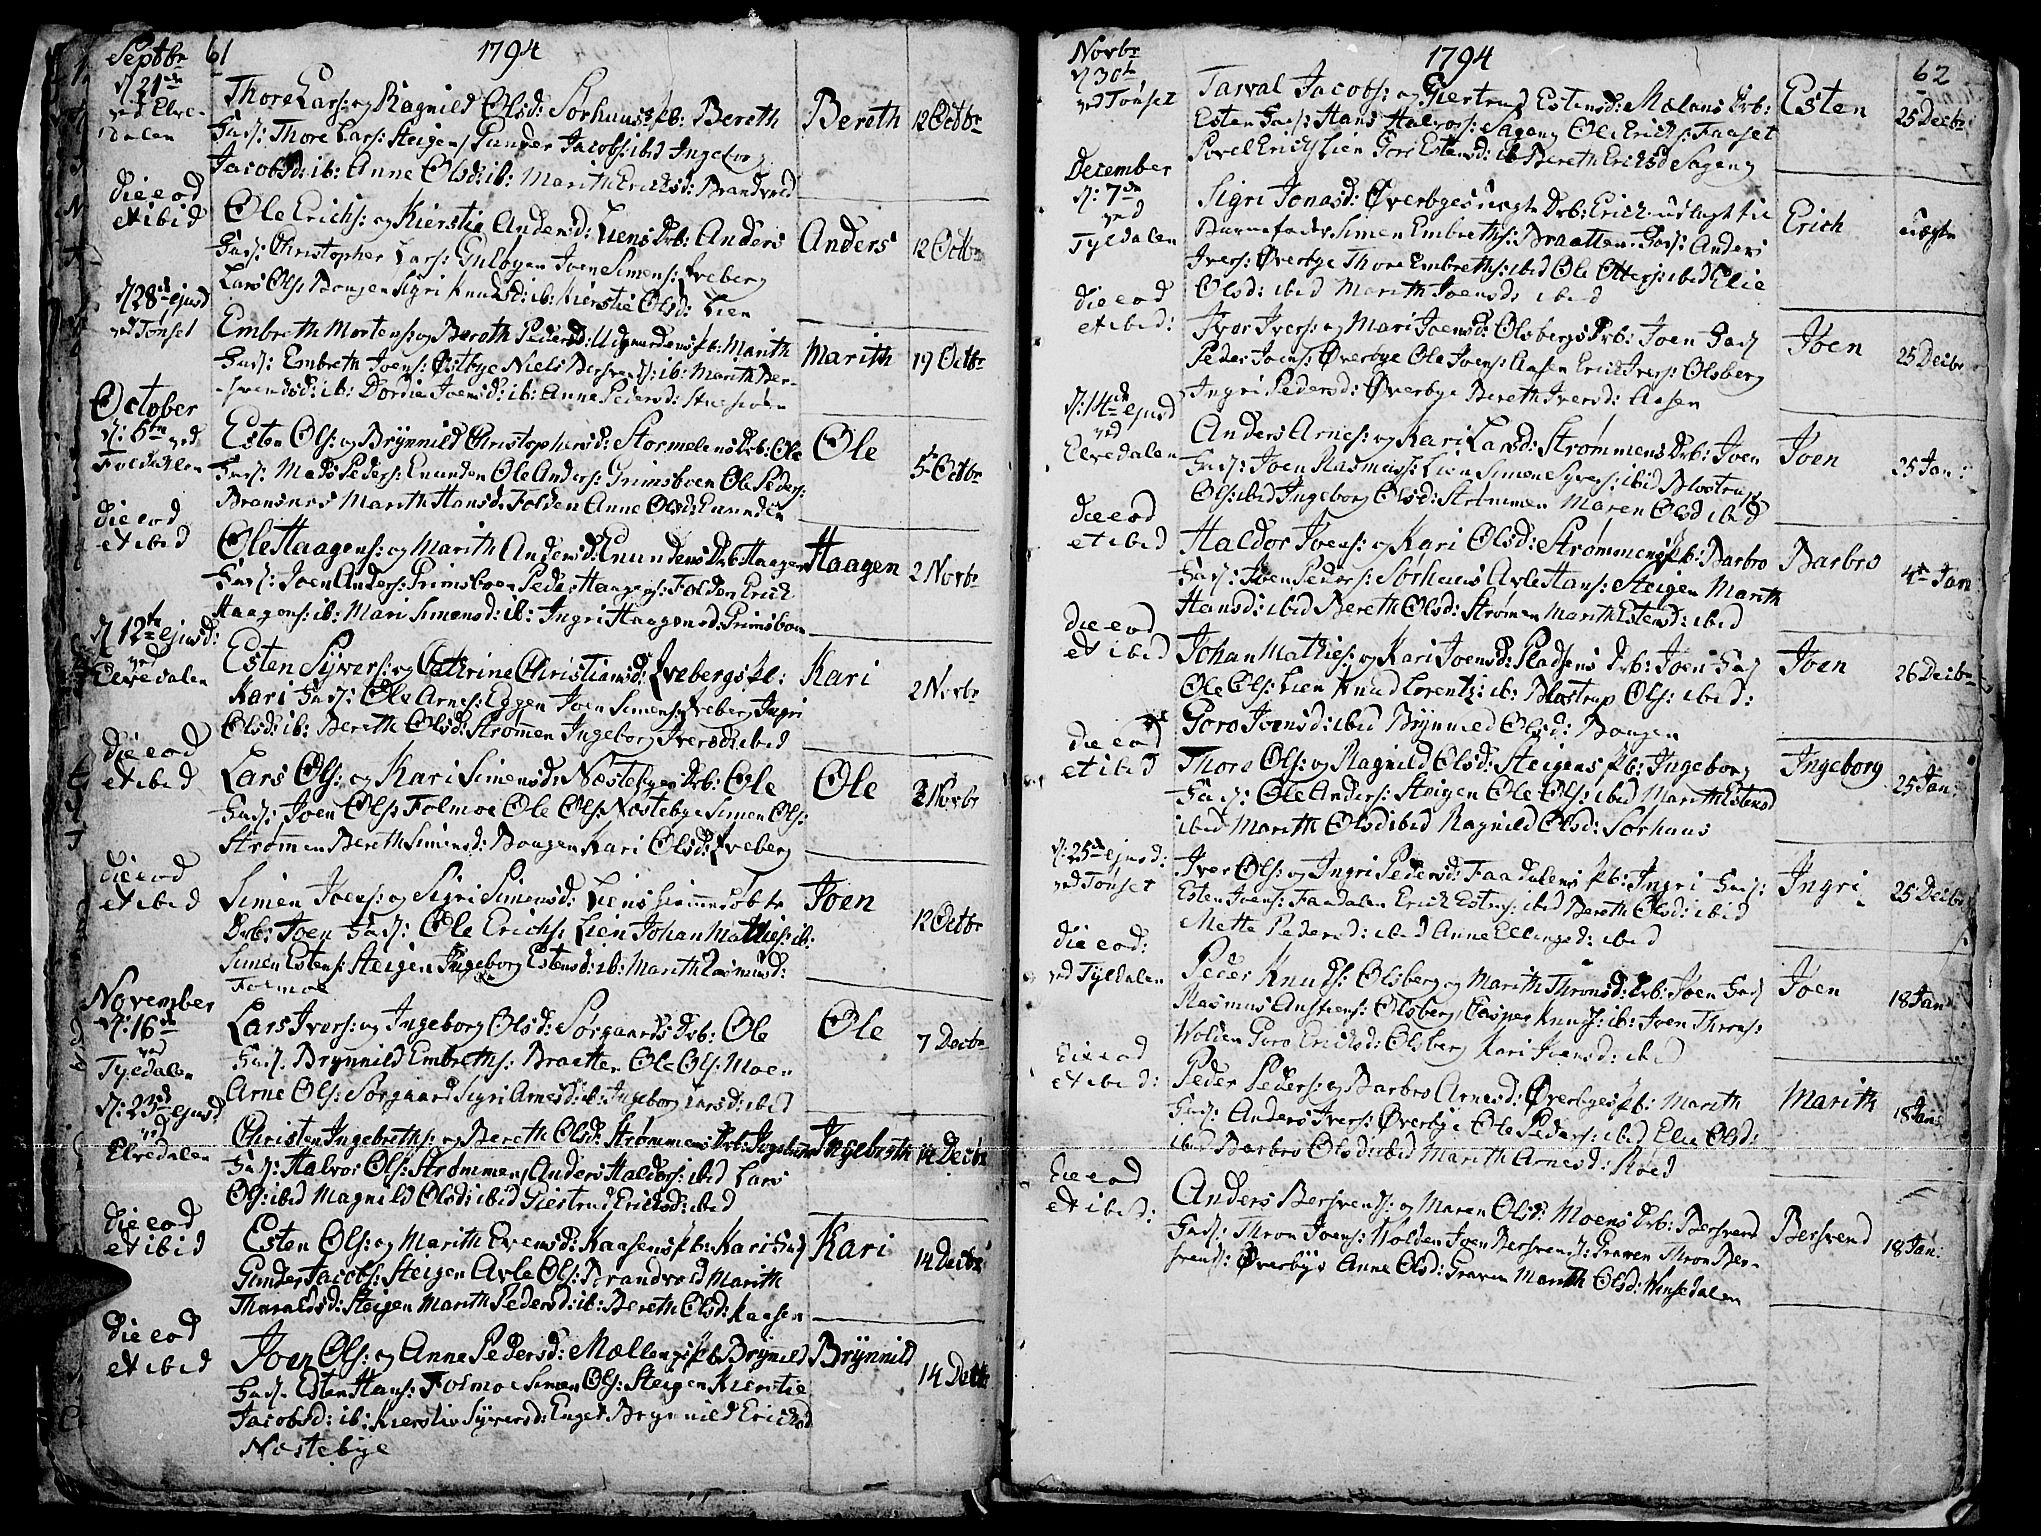 Septbr 61 1794
d 21de ved Elve-
dalen
Thore Lars: og Ragnild Olsd: Sørhuus pb: Bereth
Fad: Thore Lars: Steigen Gunder Jacobs: ibid Ingeborg
Jacobsd: ib: Anne Olsd: ib: Marith Ericksd: Brandvold
Bereth 12 Octbr
die eod
et ibid
Ole Erichs: og Kierstie Andersd: Liens Drb: Anders
Fad: Christopher Lars: Joen Simens: Qveberg
Lars Ols: Bangen Sigri Knudsd: ib: Kierstie Olsd: Lien
Anders 12 Octbr
d 28de ejusd
ved Tønset
Embreth Mortens: og Bereth Pedersd: Udgaardens pb: Marith
Fad: Embreth Joens: Østbye Niels Bersvends: ib: Marith Ber-
svendsd: ib: Dordie Joensd: ib: Anne Pedersd:
Marith 19 Octbr
October
d: 5te ved
Foldahlen
Esten Ols: og Brÿnnild Christophersd: Stormoens Drb: Ole
Fad: Mads Peders: Enunden Ole Anders: Grimsboen Ole Peders:
Bransnes Marith Hansd: Folden Anne Olsd: Enunden
Ole 5 Octbr
die eod
et ibid
Ole Haagens: og Marith Andersd: Enundens Drb: Haagen
Fad: Joen Anders: Grimsboen Peder Haagens: Folden Erick
Haagens: ib: Mari Simensd: ib: Ingri Haagensd: Grimsboen
Haagen 2 Novbr
d 12te ejusd:
ved
Elvedalen
Esten Sÿvers: og Cathrine Christiansd: Qvebergs pb:
Kari Fad: Ole Arnes: Eggen Joen Simens: Qveberg Ingri
Olsd: ib: Bereth Olsd: Strømen Ingeborg Iversd: ibid
Kari 2 Novbr
die eod
et ibid
Lars Ols: og Kari Simensd: Næstebyes Drb: Ole
Fad: Joen Ols: Folmoe Ole Ols: Næstebye Simen Ols:
Strømen Bereth Simensd: Bangen Kari Olsd: Qveberg
Ole 2 Novbr
die eod
et ibid
Simen Joens: og Sigri Simensd: Liens hiemmedøbte
Drb: Joen Fad: Ole Erichs: Lien Johan Mathies: ib:
Simen Estens: Steigen Ingeborg Estensd: ib: Marith Rasmusd:
Folmoe
Joen 12 Octbr
November
d: 16de
ved
Tyldalen
Lars Ivers: og Ingeborg Olsd: Sørgaards Drb: Ole
Fad. Brÿnnild Embreths: Braatten Ole Ols: Moen
Arne Ols: Sørgaard Sigri Arnesd: ib: Ingeborg Larsd: ibid
Ole 7 Decbr
d: 23de ejusd
ved
Elvedalen
Christen Ingebreths: og Bereth Olsd: Strømmens Drb: Ingebreth
Fad: Halvor Ols: Strømmen Anders Haldors: ibid Lars
Ols: ibid Magnild Olsd: ibid Giertrud Ericksd: ibid
Ingebreth 14 Decbr
die eod
et ibid
Esten Ols: og Marith Evensd: Kaasens pb: Kari Fad
Gunder Jacobs: Steigen Avle Ols: Brandvold Marith
Steigen Marith Pedersd: ib: Bereth Olsd: Kaasen
Kari 14 Decbr
die eod
et ibid
Joen Ols: og Anne Pedersd: Mællengs pb: Brÿnnild
Fad. Esten Hans: Folmoe Simen Ols: Steigen Kierstie
Jacobsd: ib: Kierstie Sÿversd: Enget Brÿnnild Ericksd
Næstebÿe
Brÿnnild 14 Decbr
Novbr 1794 62
d 30te
ved Tønset
Tarval Jacobs: og Giertrud Estensd: Mælans Drb:
Esten Fad: Hans Halvors: Sageng Ole Erichs: Faaset
Povel Erichs: Lien Gori Estensd: ib Bereth Ericksd Sageng
Esten 25 Decbr
December
d: 7de
ved
Tyldalen
Sigri Jonasd: Øverbyes uægte Drb: Erich udlagt til
Barnefader Simen Embreths: Braatten. Fad: Anders
Ivers: Øverbye Thore Embreths: ibid Ole Otters: ibid Elie
Olsd: ibid Marith Joensd: ibid
Erich uægte
die eod
et ibid:
Iver Ivers: og Mari Joensd: Olsbergs Drb: Joen Fad
Peder Joens: Øverbye Ole Joens: Aasen Erick Ivers: Olsberg
Ingri Pedersd: Øverbye Bereth Iversd: Aasen
Joen 25 Decbr
d: 14de ejusd
ved
Elvedalen
Anders Arnes: og Kari Larsd: Strømmens Drb: Joen
Fad: Joen Rasmus: Lien Simen Syvers: ibid Blostrup
Ols: ibid Ingeborg Olsd: Strømmen Maren Olsd ibid
Joen 25 Jan:
die eod
et ibid
Haldor Joens: og Kari Olsd: Strømmens pb: Barbro
Fad: Joen Peders: Sørhuus Avle Hans: Steigen Marith
Hansd: ibid Bereth Olsd: Strømen Marith Estensd: ibid
Barbro 4de Jan
die eod
et ibid
Johan Mathies: og Kari Joensd: Pladsens Drb: Joen Fad
Ole Ols: Lien Knud Lorentz: ib: Blostrup Ols: ibid:
Goro Joensd: ibid Brÿnnild Olsd: Bangen
Joen 26 Decbr
die eod
et ibid
Thore Ols: og Ragnild Olsd: Steigens pb: Ingeborg
Fad: Ole Anders: Steigen Ole Ols: ibid Marith Estensd
ibid Marith Olsd ibid Ragnild Olsd: Sørhuus
Ingeborg 25 Jan:
d: 25de ejusd:
ved Tønset
Iver Ols: og Ingri Pedersd: Faadalens pb: Ingri Fad:
Esten Joens: Faadalen Erick Estens: ibid Bereth Olsd: ibid
Mette Pedersd: ibid Anne Ellingsd: ibid
Ingri 25 Decbr
die eod:
ved Tÿldalen
Peder Knuds: Olsberg og Marith Thronsd: Drb: Joen Fad
Rasmus Austens: Olsberg Casper Knuds: ib: Joen Throns:
Wolden Goro Ericksd: Olsberg Kari Joensd: ibid
Joen 18 Jan
die eod
et ibid:
Peder Peders: og Barbro Arnesd: Øverbyes pb: Marith
Fad: Anders Ivers: Øverbye Ole Peders: ibid Elie Olsd:
ibid Barbro Olsd: ibid Marith Arnesd: Moed
Marith 18 Jan
die eod
et ibid:
Anders Bersvends: og Maren Olsd: Moens Drb: Bersvend
Fad: Thron Joens: Wolden Joen Bersvends: Graven Thron Ber-
svends: Øverbye Anne Olsd: Graven Marith Olsd: Winsedalen
Bersvend 18 Jan: